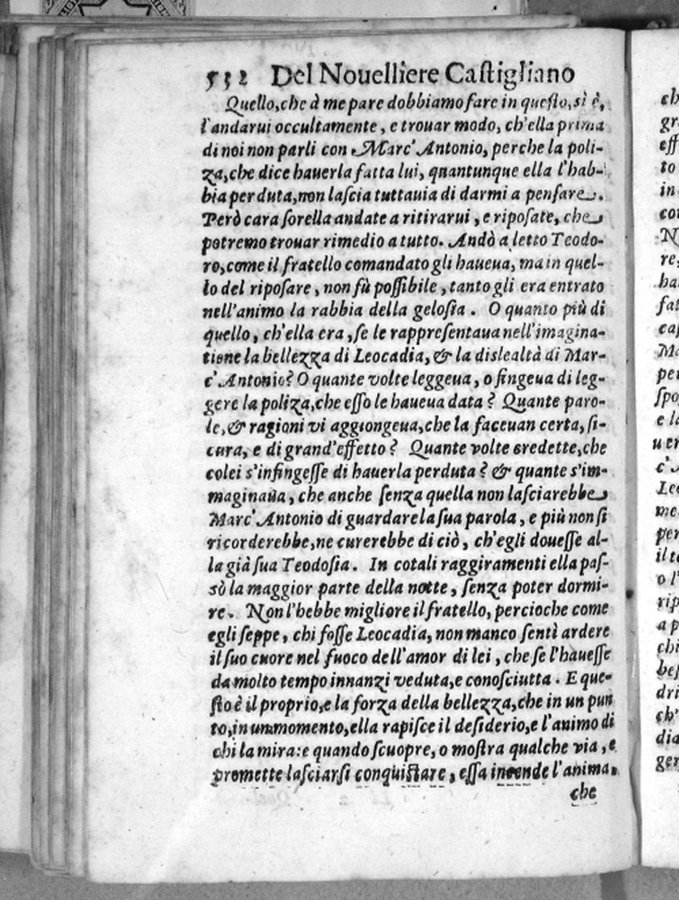 532 Del Nouelliere Caſtigliano
Quello, che à me pare dobbiamo fare in queſto, sì è,
l'andarui occultamente, e trouar modo, ch'ella prima
di noi non parli con Marc' Antonio, perche la poli-
za, che dice hauerla fatta lui, quantunque ella l'hab-
bia perduta, non laſcia tuttauia di darmi a penſare.
Però cara ſorella andate a ritirarui, e ripoſate, che
potremo trouar rimedio a tutto. Andò a letto Teodo-
ro, come il fratello comandato gli haueua, ma in quel-
lo del ripoſare, non fù poſſibile, tanto gli era entrato
nell'animo la rabbia della geloſia. O quanto più di
quello, ch'ella era, ſe le rappreſentaua nell'imagina-
tione la bellezza di Leocadia, & la dislealtà di Mar-
c' Antonio? O quante volte leggeua, o fingeua di leg-
gere la poliza, che eſſo le haueua data? Quante paro-
le, & ragioni vi aggiongeua, che la faceuan certa, ſi-
cura, e di grand'effetto? Quante volte credette, che
colei s'infingeſſe di hauerla perduta? & quante s'im-
maginaua, che anche ſenza quella non laſciarebbe
Marc' Antonio di guardare la ſua parola, e più non ſi
ricorderebbe, ne curerebbe di ciò, ch'egli doueſſe al-
la già ſua Teodoſia. In cotali raggiramenti ella paſ-
sò la maggior parte della notte, ſenza poter dormi-
re. Non l'hebbe migliore il fratello, percioche come
egli ſeppe, chi foſſe Leocadia, non manco ſentì ardere
il ſuo cuore nel fuoco dell'amor di lei, che ſe l'haueſſe
da molto tempo innanzi veduta, e conoſciutta. E que-
ſto è il proprio, e la forza della bellezza, che in un pun
to, in un momento, ella rapiſce il deſiderio, e l'animo di
chi la mira: e quando ſcuopre, o moſtra qualche via, e
promette laſciarſi conquiſtare, eſſa incende l'anima,
che